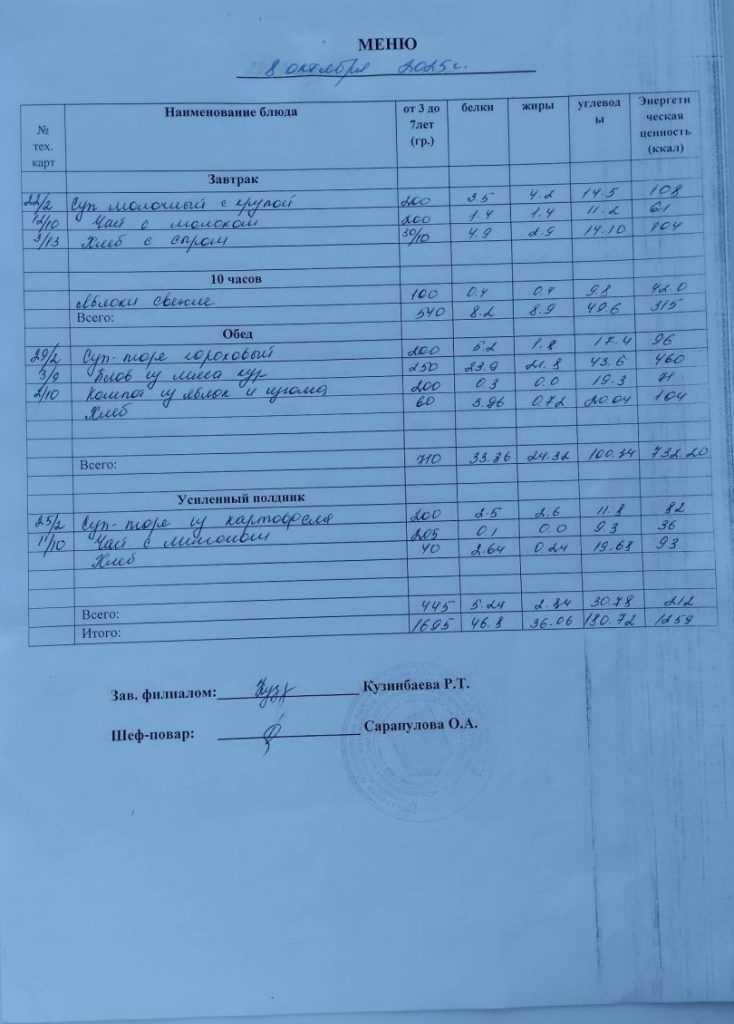 МЕНЮ
8 октября 2025 г.
№ тех. карт Наименование блюда от 3 до 7лет (гр.) белки жиры углеводы Энергетическая ценность (ккал)
Завтрак
22/2 Суп молочный с крупой 200 3.5 4.2 14.5 108
12/10 Чай с молоком 200 1.4 1.4 11.2 61
3/13 Хлеб с сыром 30/10 4.9 2.9 14.10 104
10 часов
Яблоки свежие 100 0.4 0.4 9.8 42.0
Всего: 540 8.2 8.9 49.6 315
Обед
29/2 Суп-пюре гороховый 200 5.2 1.8 17.4 96
3/9 Плов из мяса кур 250 23.9 21.8 43.6 460
2/10 Компот из яблок и изюма 200 0.3 0.0 19.3 71
Хлеб 60 3.96 0.72 20.04 104
Всего: 710 33.36 24.32 100.34 732.20
Усиленный полдник
25/2 Суп-пюре из картофеля 200 2.5 2.6 11.8 82
11/10 Чай с лимоном 205 0.1 0.0 9.3 36
Хлеб 40 2.64 0.24 19.68 93
Всего: 445 5.24 2.84 30.78 212
Итого: 1695 46.8 36.06 180.72 1259
Зав. филиалом: Кузинбаева Р.Т.
Шеф-повар: Сарапулова О.А.